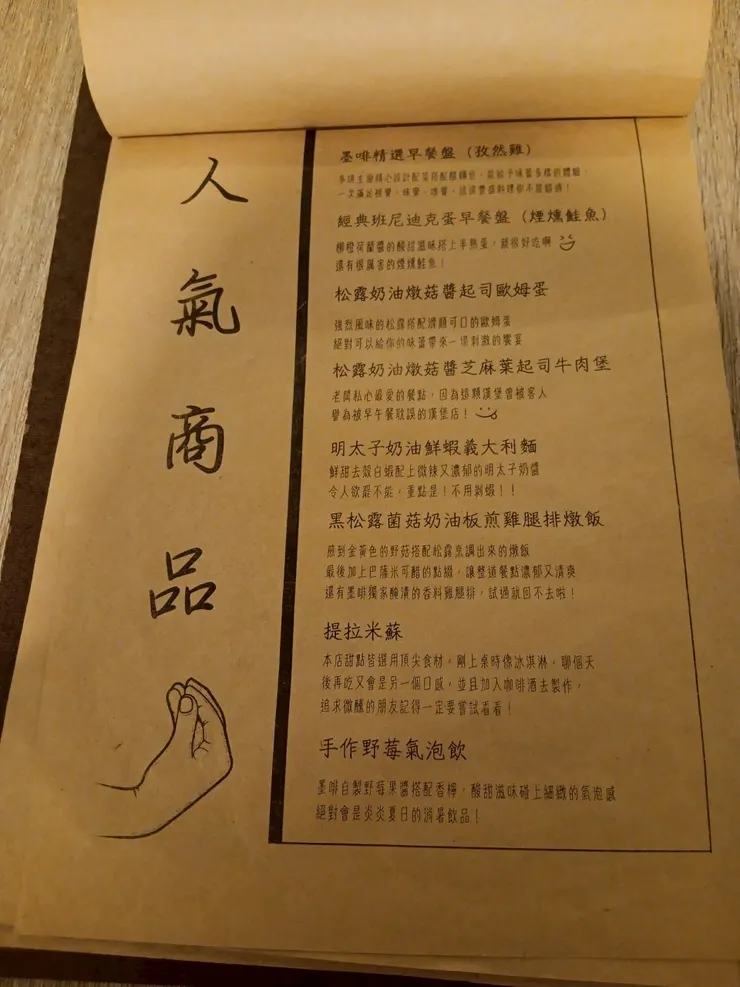 人氣商品
墨啡精選早餐盤（孜然雞）
一次滿足視覺、味覺、嗅覺，
經典班尼迪克蛋早餐盤（煙燻鮭魚）
柳橙荷蘭醬的酸甜滋味搭上半熟蛋，就很好吃啊
還有很厲害的煙燻鮭魚！
松露奶油燉菇醬起司歐姆蛋
強烈風味的松露搭配滑順可口的歐姆蛋
絕對可以給你的味蕾帶來一場刺激的饗宴
松露奶油燉菇醬芝麻葉起司牛肉堡
老闆私心最愛的餐點，因為這顆漢堡曾被客人
譽為被早午餐耽誤的漢堡店！
明太子奶油鮮蝦義大利麵
鮮甜去殼白蝦配上微辣又濃郁的明太子奶醬
令人欲罷不能，重點是！不用剝蝦！！
黑松露菌菇奶油板煎雞腿排燉飯
煎到金黃色的野菇搭配松露烹調出來的燉飯
最後加上巴薩米可醋的點綴，讓整道餐點濃郁又清爽
還有墨啡獨家醃漬的香料雞腿排，試過就回不去啦！
提拉米蘇
本店甜點皆選用頂尖食材，剛上桌時像冰淇淋，聊個天
後再吃又會是另一個口感，並且加入咖啡酒去製作，
追求微醺的朋友記得一定要嘗試看看！
手作野莓氣泡飲
墨啡自製野莓果醬搭配香檸，酸甜滋味碰上細緻的氣泡感
絕對會是炎炎夏日的消暑飲品！